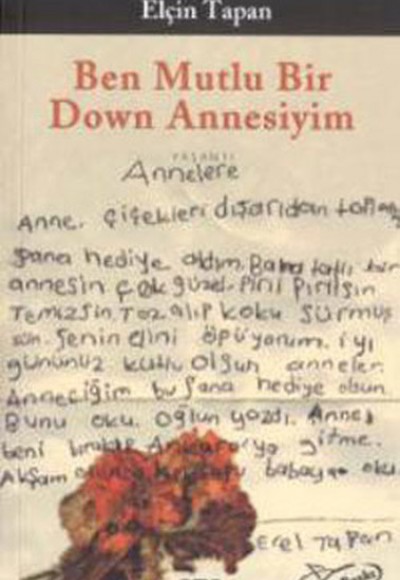 Elçin Tapan
Ben Mutlu Bir
Down Annesiyim
YAŞANTI
Annelere
Anne. Çiçekleri dışarıdan
Sana hediye aldım. Bana tatlı bir
annesin çok güzel. Piril Pirilsin
Temizsin. Toz alıp koku Sürmüş
sün. Senin elini öpüyorum. iyi
gününüz kutlu olsun anneler.
Anneciğim bu Sana hediye olsun
Bunu oku. Oğlun yazdı. Anne
beni bırakıp Ankara'ya gitme.
Akşam babaya oku
erel Tapan